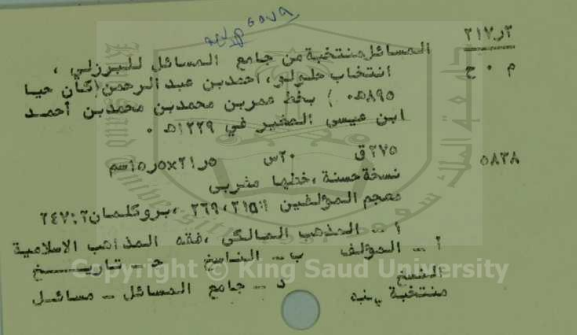 ٢١٧٫٣
م ٠ ح
المسائل منتخبة من جامع المسائل للبرزلي ،
انتخاب حلولو، أحمد بن عبد الرحمن (كان حيا
٨٩٥هـ ) بخط عمر بن محمد بن محمد بن أحمد
ابن عيسى الصغير في ١٢٢٩هـ ٠
٥٨٣٨
٢٧٥ق ٢٠س ٢١٫٥×١٥٫٥سم
نسخة حسنة ،خطها مغربي
معجم المؤلفين ١: ٢١٥، ٢٦٩ ،بروكلمان٢: ٢٤٧
أ - المذهب المالكي ،فقه المذاهب الاسلامية
أ - المؤلف ب - الناسخ ج - تاريخ
النسخ د - جامع المسائل - مسائل
منتخبة
Copyright © King Saud University